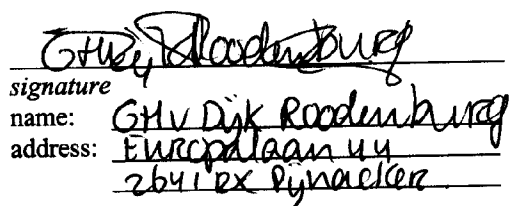 GHvDijk Roodenburg
signature
name: GHv Dijk Roodenburg
address: Europalaan 44
2641 RX Pijnacker